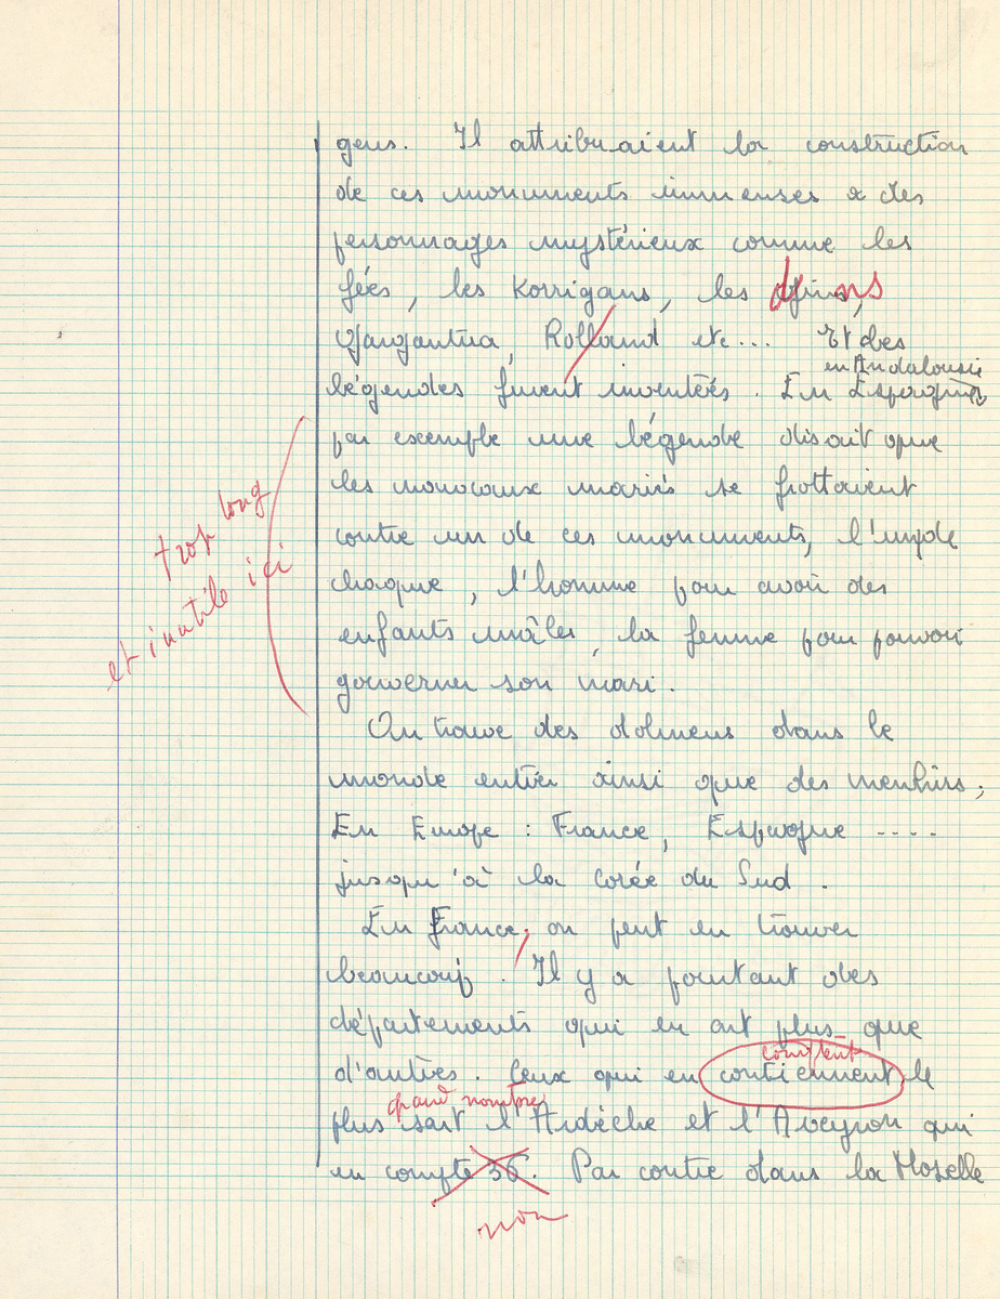 gens. Il attribuaient la construction
de ces monuments immenses a des
personnages mystérieux comme les
fées, les Korrigans, les djinns,
Gargantua, Rolland etc... Et des
en Andalousie
légendes furent inventées. En Espagne
par exemple une légende disait que
les nouveaux mariés se frottaient
contre un de ces monuments, l'un de
chaque, l'homme pour avoir des
enfants mâles, la femme pour pouvoir
gouverner son mari.
trop long
et inutile ici
On trouve des dolmens dans le
monde entier ainsi que des menhirs;
En Europe : France, Espagne ----
jusqu'à la Corée du Sud.
En France, on peut en trouver
beaucoup. Il y a pourtant des
départements qui en ont plus que
comptent
d'autres. Ceux qui en contiennent le
grand nombre
plus sont l'Ardèche et l'Aveyron qui
en compte 36. Par contre dans la Moselle
non